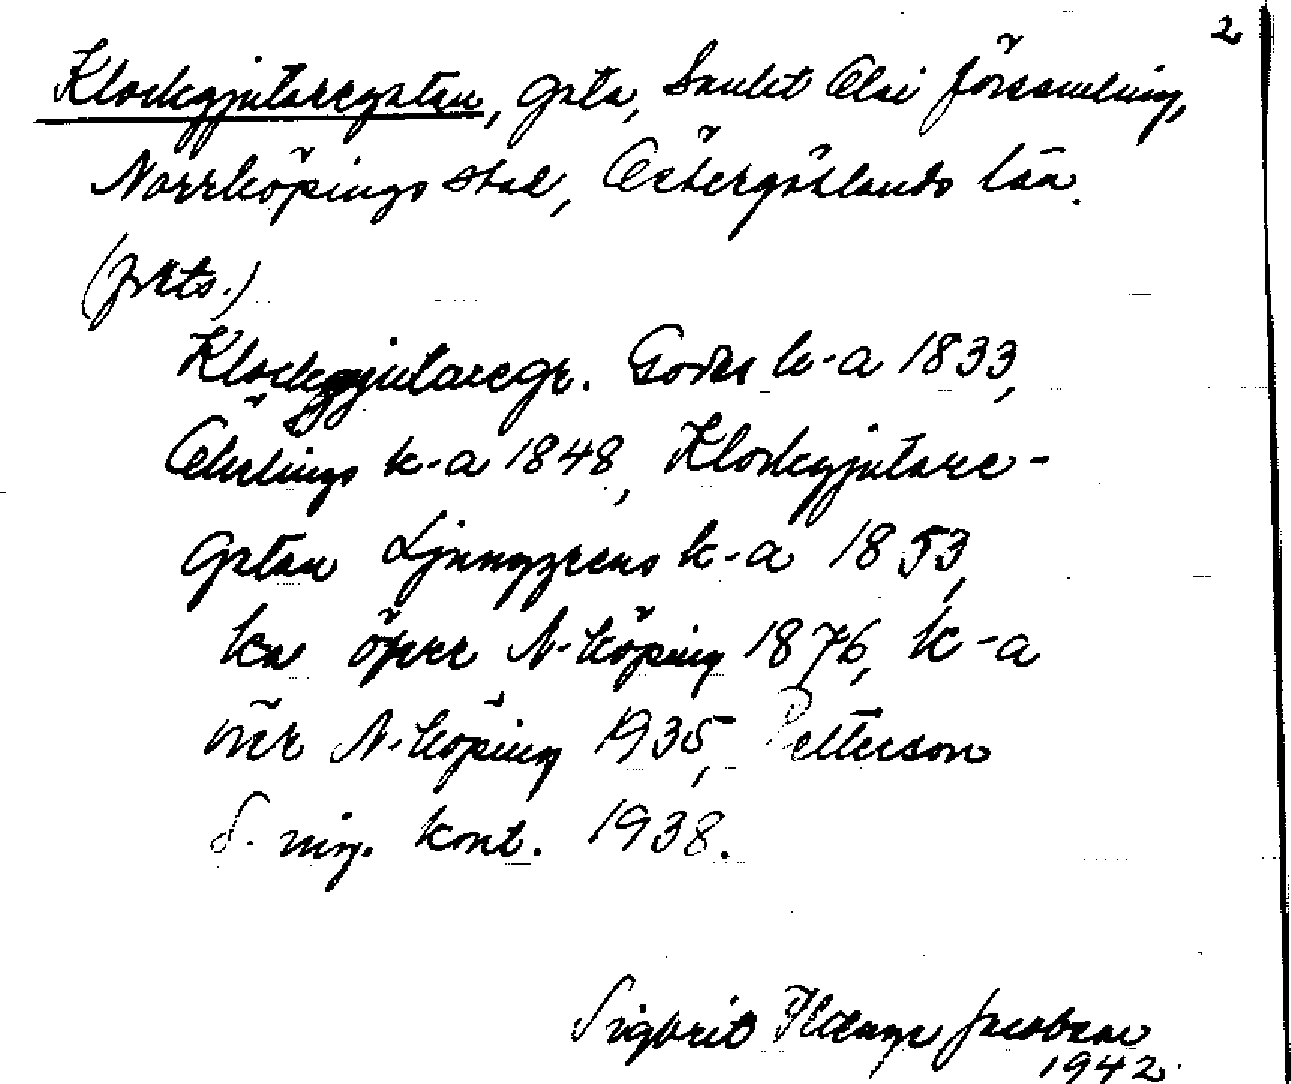 2
Klockgjutaregatan, gata, Sankt Olai församling,
Norrköpings stad, Östergötlands län.
(forts.)
Klockgjutaregr. Godes k-a 1833,
Öhrlings k-a 1848, Klockgjutare-
gatan Ljunggrens k-a 1853,
ka öfver N-köping 1876, k-a
över N-köping 1935, Petterson
S. ing. kont. 1938.
Sigbrit Plænge Jacobson
1942.